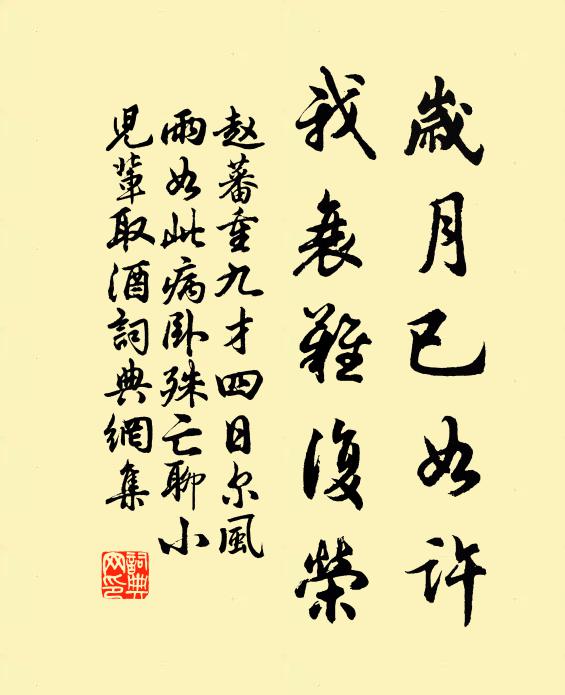 歲月已如許
我衰難復榮
赵蕃重九才四日尔風
雨如此病卧殊亡聊小
児輩取酒詞典網集
詞典
网印